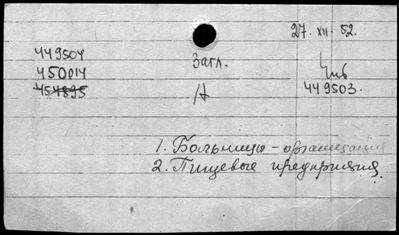 27. XII. 52.
449504
Загл.
450014
Инв
454895
А
449503.
1. Больницы - организация
2. Пищевые предприятия